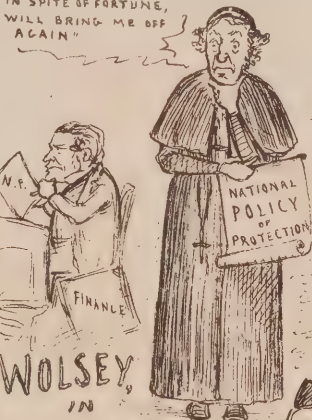 IN SPITE OF FORTUNE,
WILL BRING ME OFF
AGAIN"
N.P.
NATIONAL
POLICY
OF
PROTECTION
FINANCE
WOLSEY,
IN